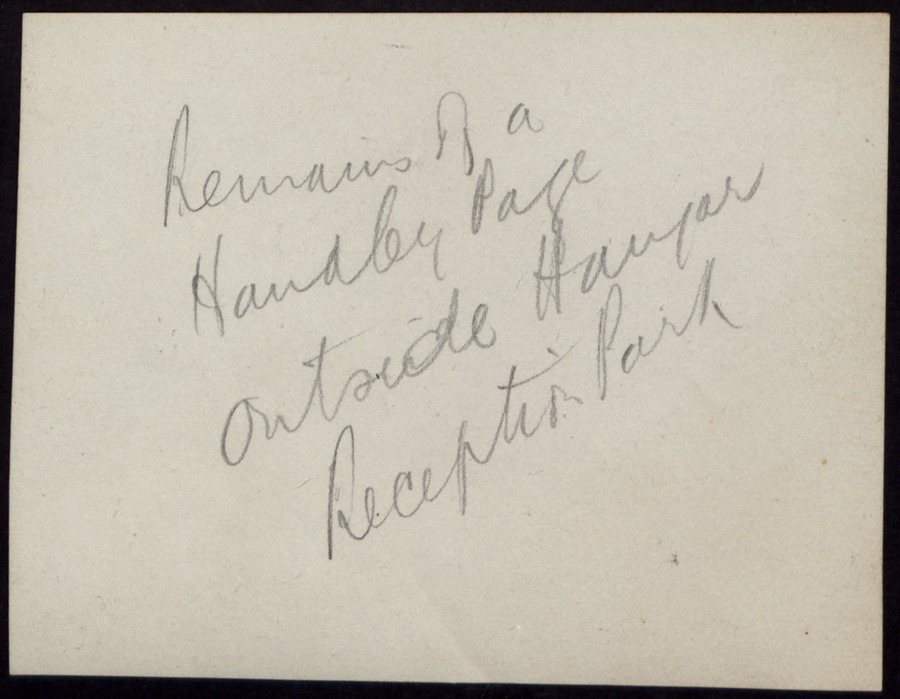 Remains of a
Handley Page
outside Hangar
Reception Park